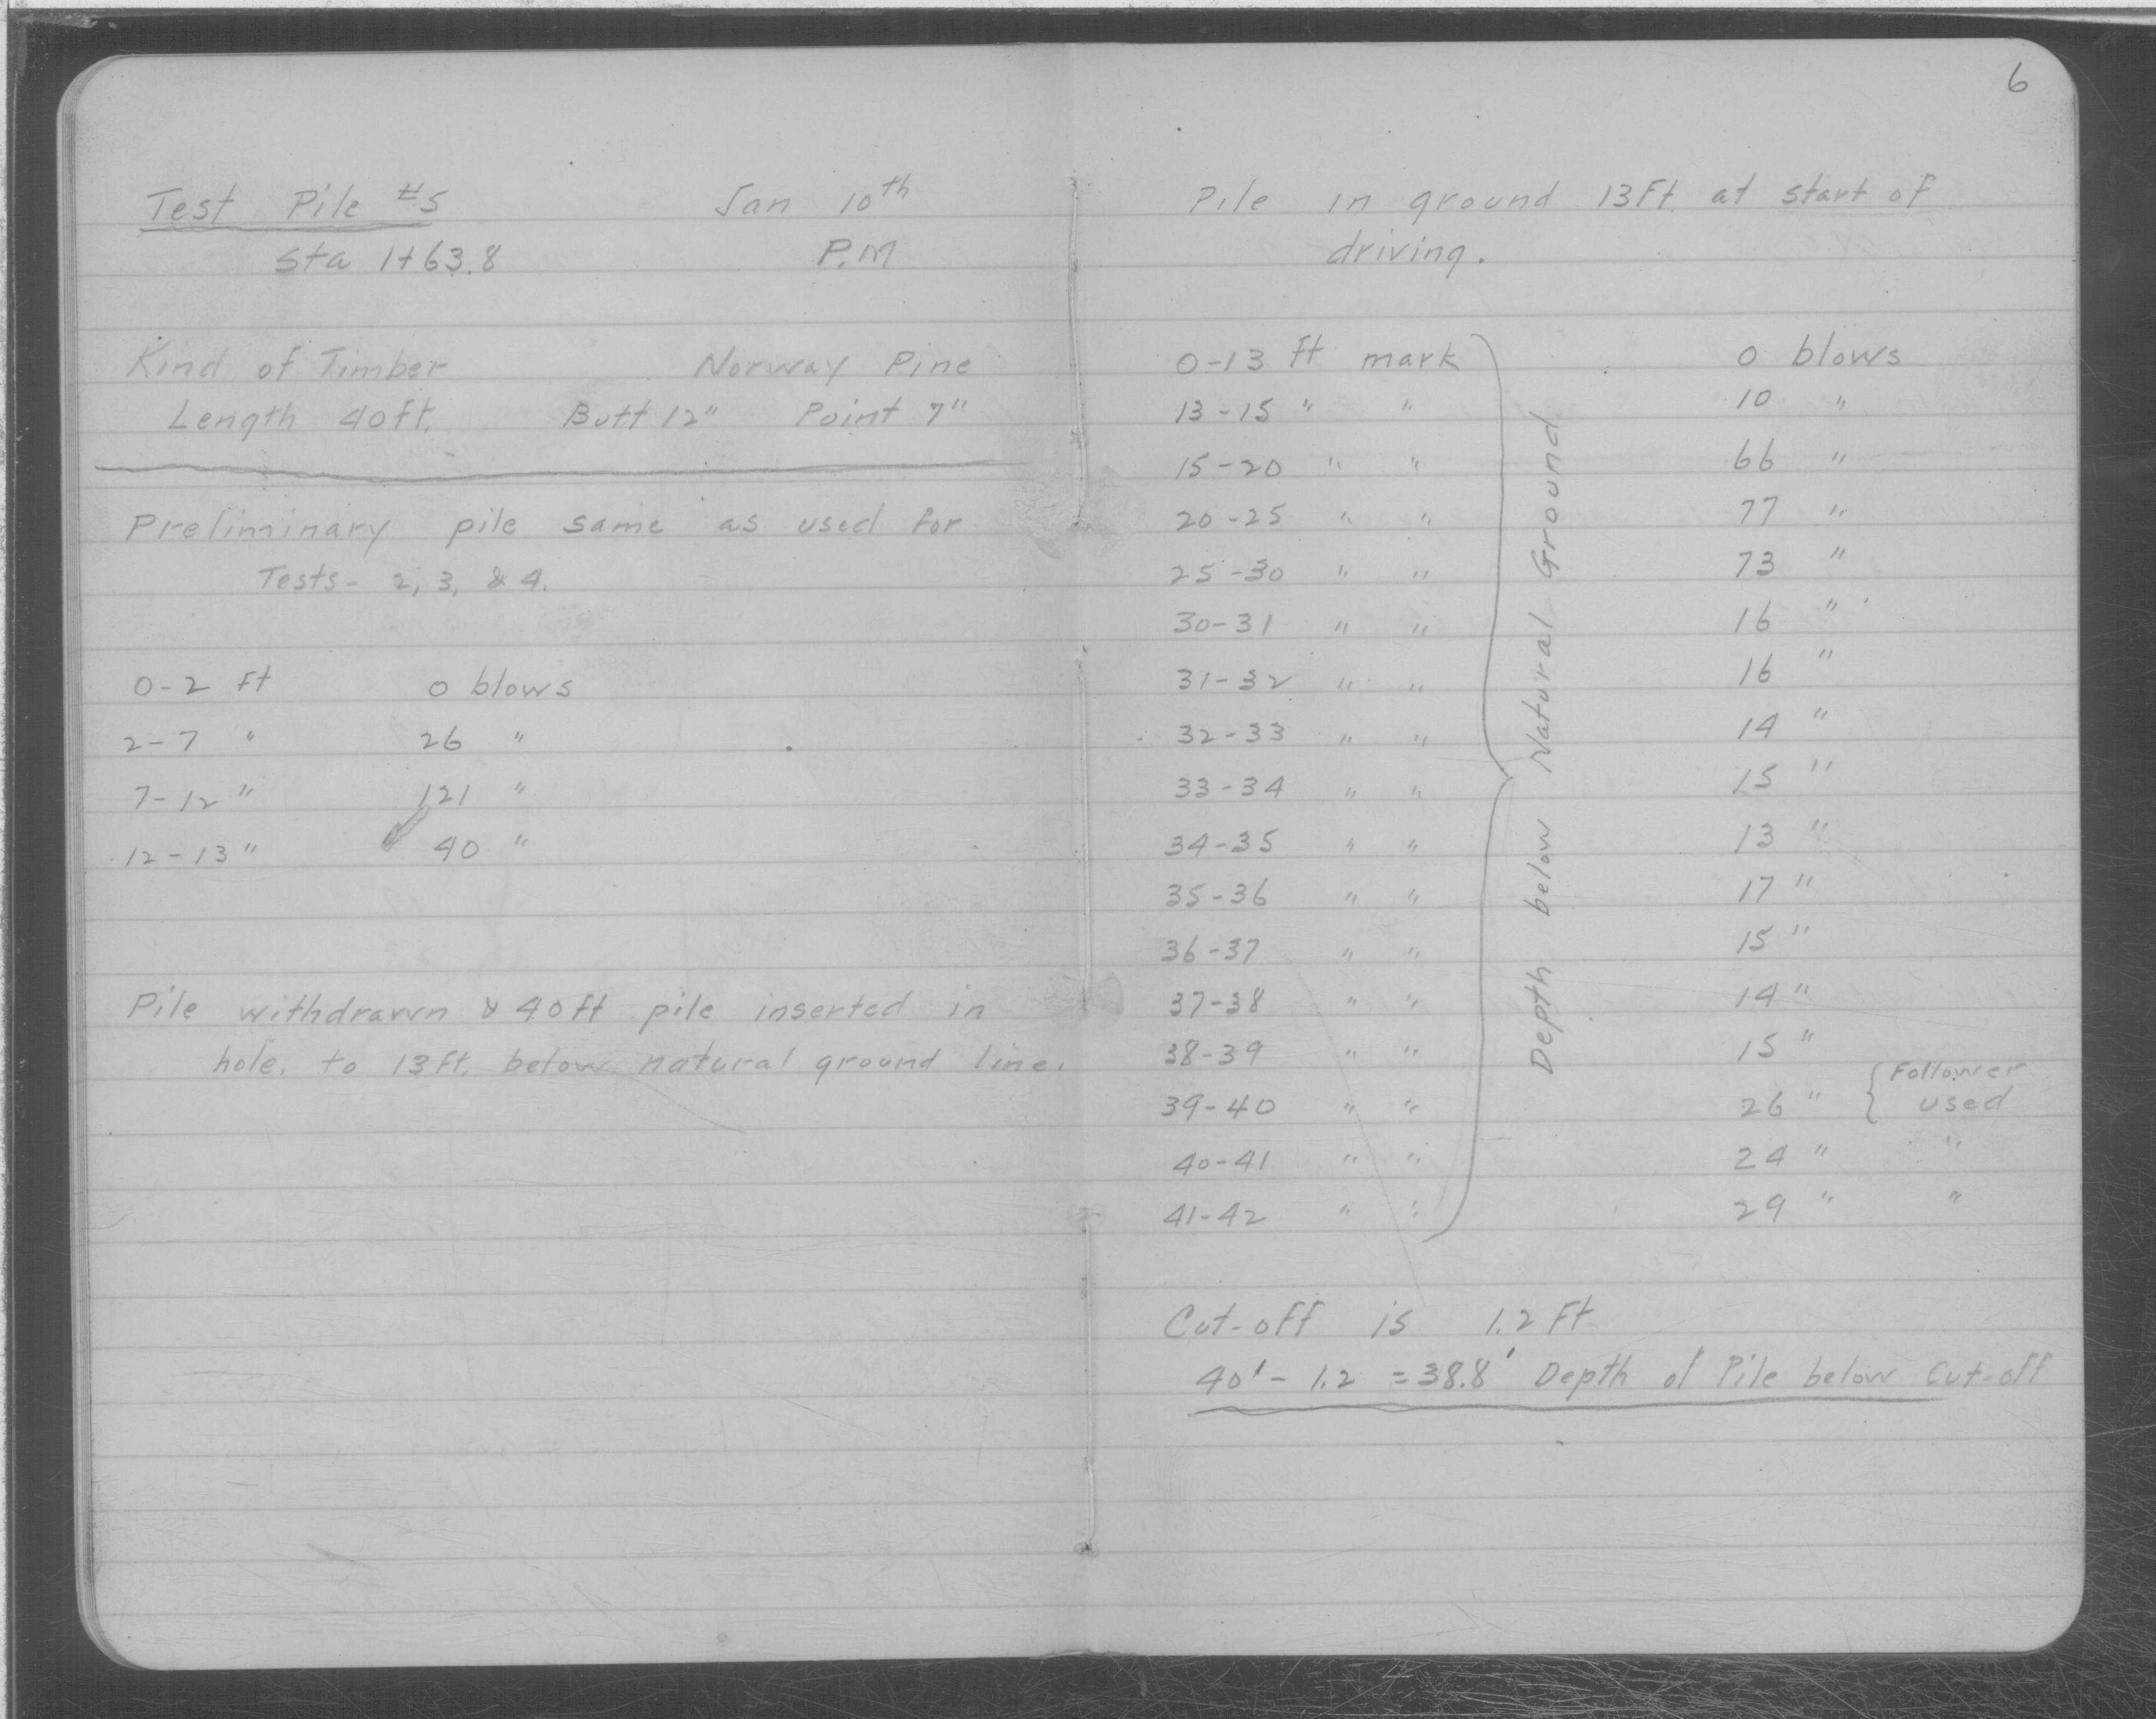 6
Test Pile #5 Jan 10th
Sta 1+63.8 P.M
Kind of Timber Norway Pine
Length 40ft. Butt 12" Point 7"
Preliminary pile same as used for
Tests- 2, 3, & 4.
0-2 ft 0 blows
2-7 " 26 "
7-12 " 121 "
12-13 " 40 "
Pile withdrawn & 40ft pile inserted in
hole, to 13ft. below natural ground line.
Pile in ground 13Ft. at start of
driving.
0-13 ft mark 0 blows
13-15 " " 10 "
15-20 " " 66 "
20-25 " " 77 "
25-30 " " 73 "
30-31 " " 16 "
31-32 " " 16 "
32-33 " " 14 "
33-34 " " 15 "
34-35 " " 13 "
35-36 " " 17 "
36-37 " " 15 "
37-38 " " 14 "
38-39 " " 15 "
39-40 " " 26 " { Follower used
40-41 " " 24 " "
41-42 " " 29 " "
Depth below Natural Ground
Cut-off is 1.2 Ft
40' - 1.2 = 38.8' Depth of Pile below Cut-off